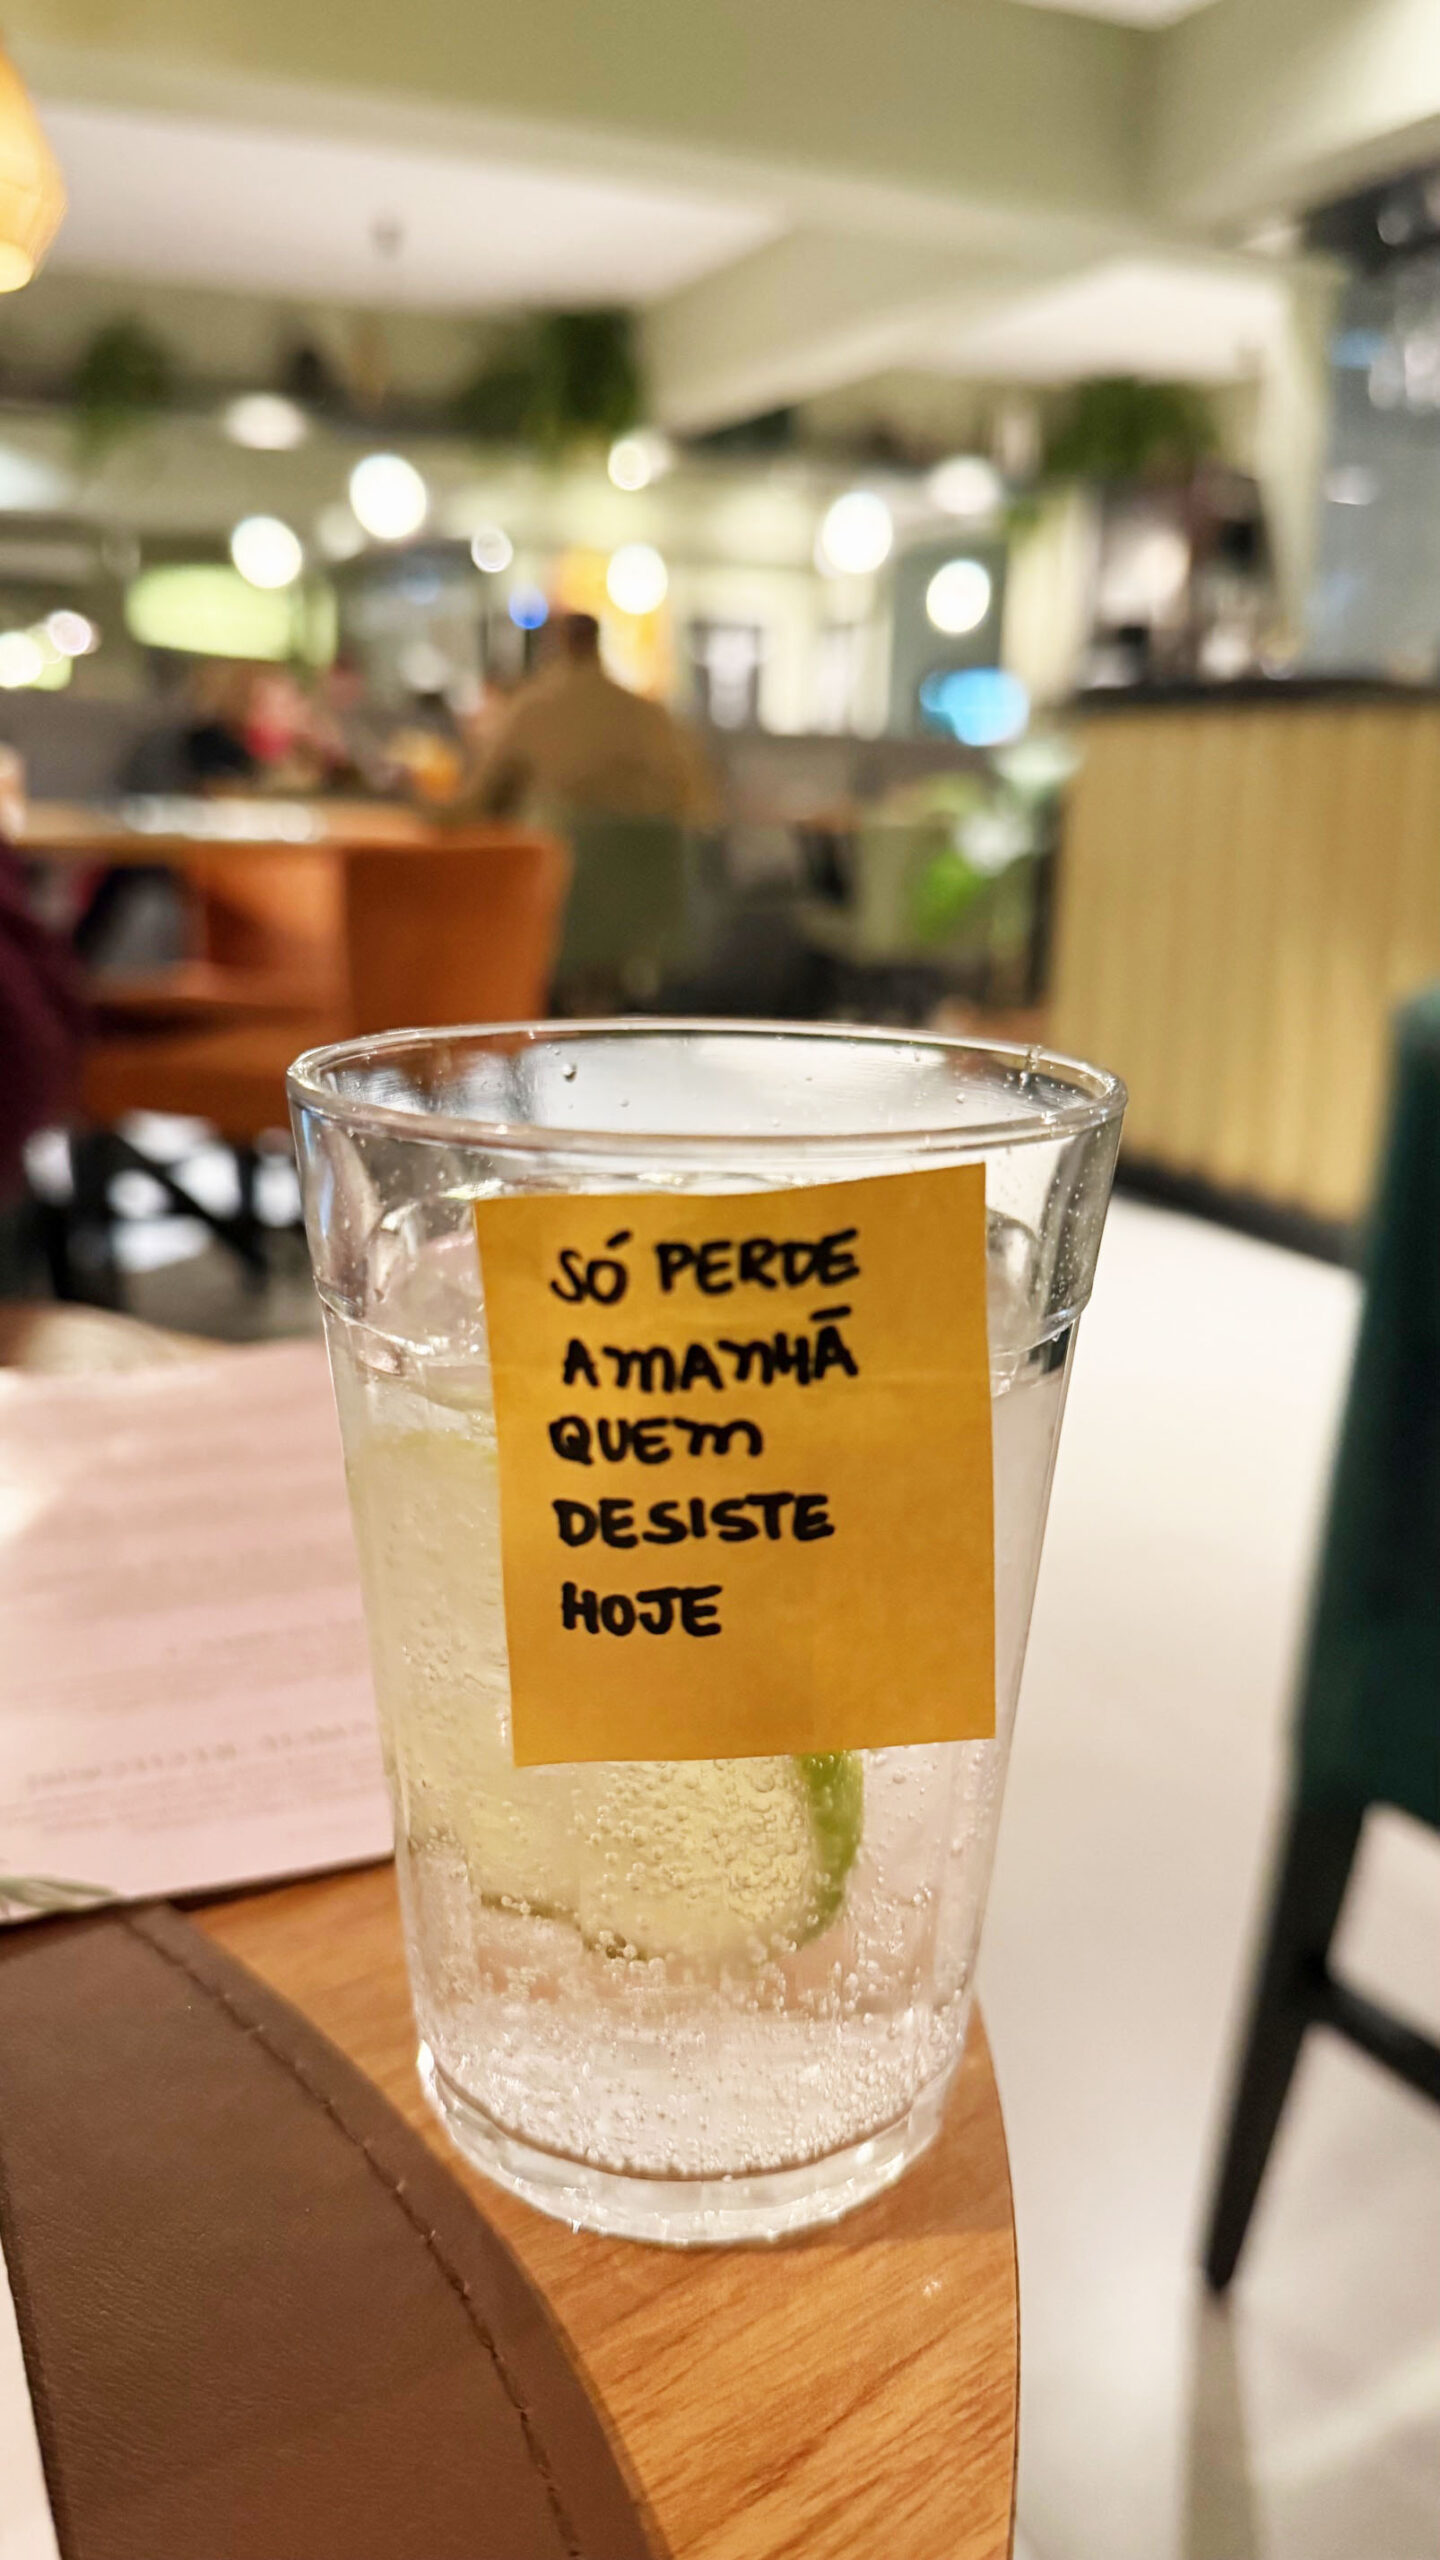 SÓ PERDE
AMANHÃ
QUEM
DESISTE
HOJE